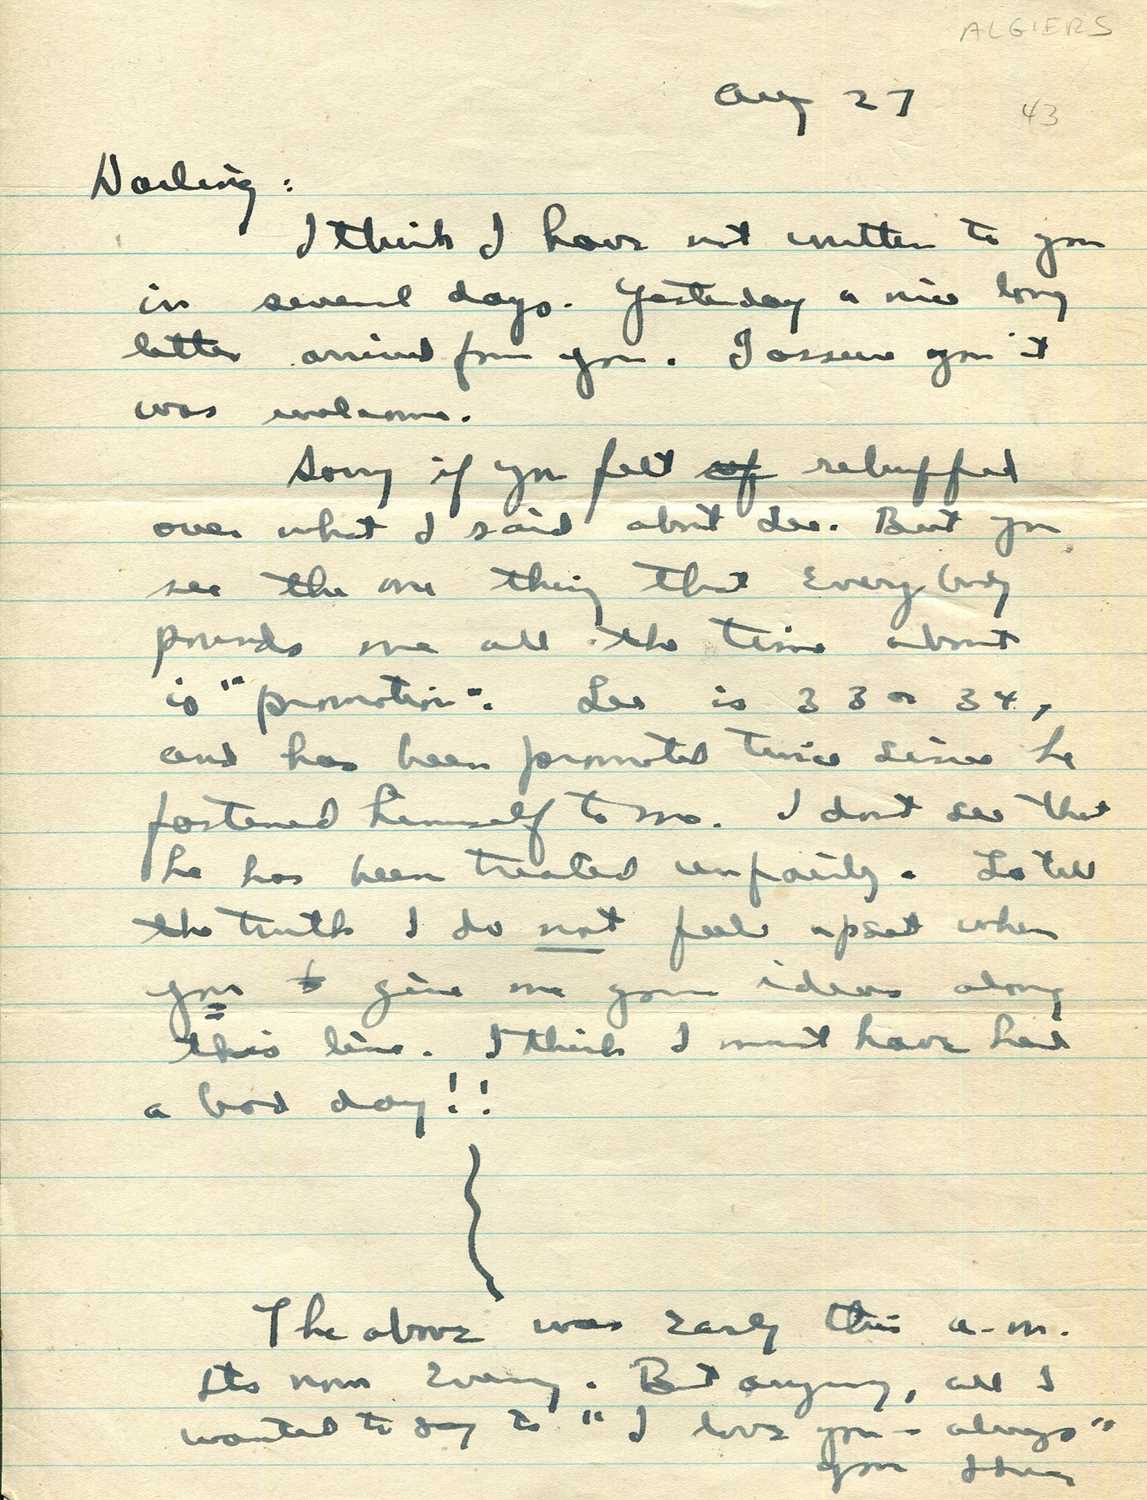 ALGIERS
Aug 27
43
Darling:
I think I have not written to you
in several days. Yesterday a nice long
letter arrived from you. I assure you it
was welcome.
Sorry if you felt rebuffed
over what I said about Lee. But you
see the one thing that Everybody
pounds me all the time about
is "promotion". Lee is 33 or 34,
and has been promoted twice since he
fastened himself to me. I don't see that
he has been treated unfairly. To tell
the truth I do not feel upset when
you give me your ideas along
this line. I think I must have had
a bad day!!
The above was Early this a-m.
Its now Evening. But anyway, all I
wanted to say is "I love you - always"
your